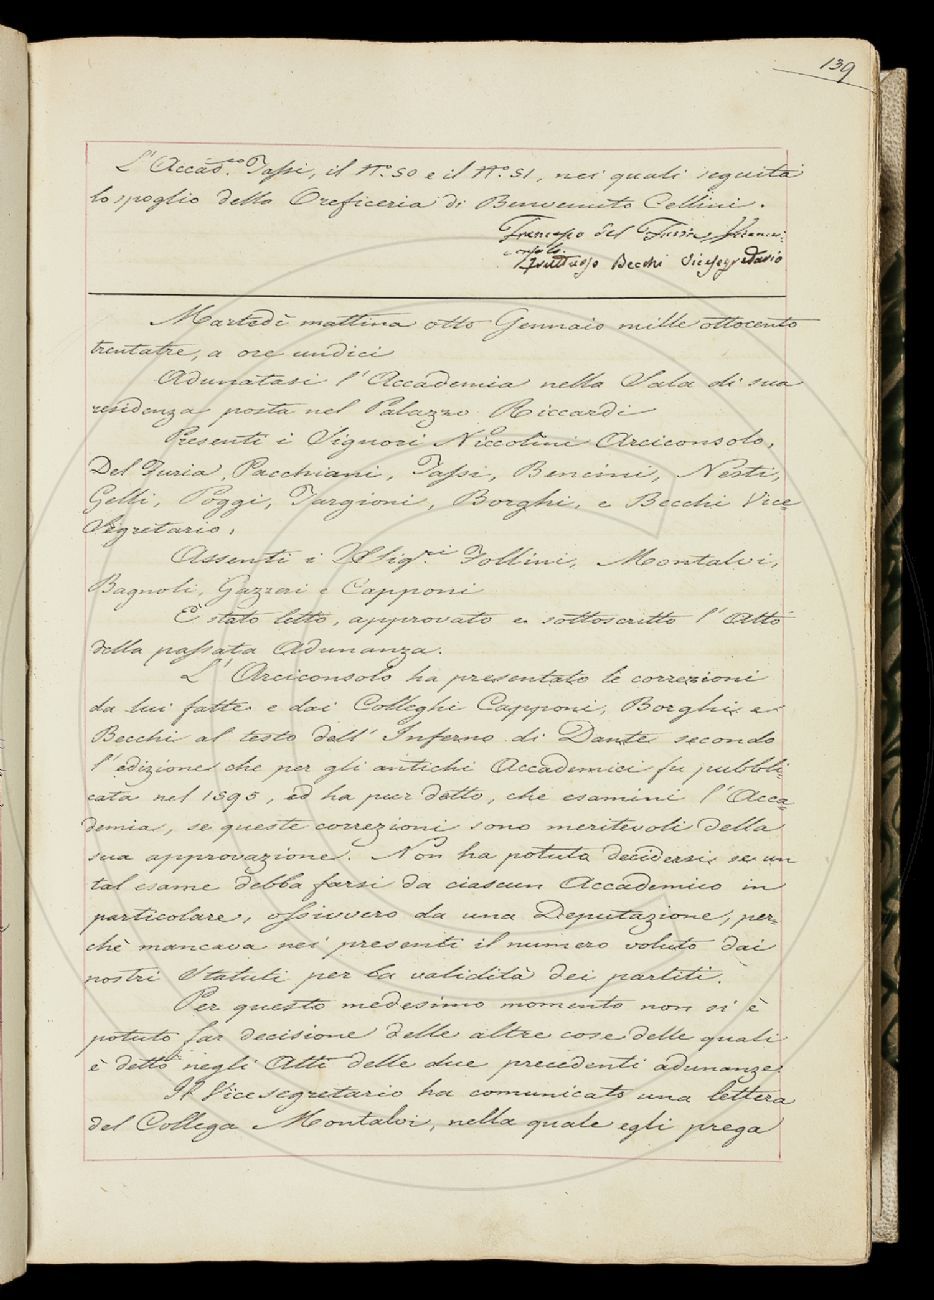 139
L'Accad.co Tassi, il N.o 50 e il N.o 51, nei quali seguita
lo spoglio della Oreficeria di Benvenuto Cellini.
Francesco del Furia
Fruttuoso Becchi Vicesegretario
Martedì mattina otto Gennaio mille ottocento
trentatre, a ore undici
Adunatasi l'Accademia nella Sala di sua
residenza posta nel Palazzo Riccardi
Presenti i Signori Niccolini Arciconsolo,
Del Furia, Pacchiani, Tassi, Bencini, Nesti,
Gelli, Poggi, Targioni, Borghi, e Becchi Vice-
Segretario.
Assenti i SSig.ri Follini, Montalvi,
Bagnoli, Gazzeri e Capponi
È stato letto, approvato e sottoscritto l'Atto
della passata Adunanza.
L'Arciconsolo ha presentato le correzioni
da lui fatte e dai Colleghi Capponi, Borghi e
Becchi al testo dell'Inferno di Dante secondo
l'edizione che per gli antichi Accademici fu pubbli-
cata nel 1595, ed ha pur detto, che esamini l'Acca-
demia, se queste correzioni sono meritevoli della
sua approvazione. Non ha potuto decidersi se un
tal esame debba farsi da ciascun Accademico in
particolare, ossivvero da una Deputazione, per-
chè mancava nei presenti il numero voluto dai
nostri Statuti per la validità dei partiti.
Per questo medesimo momento non si è
potuto far decisione delle altre cose delle quali
è detto negli Atti delle due precedenti adunanze
Il Vicesegretario ha comunicato una lettera
del Collega Montalvi, nella quale egli prega